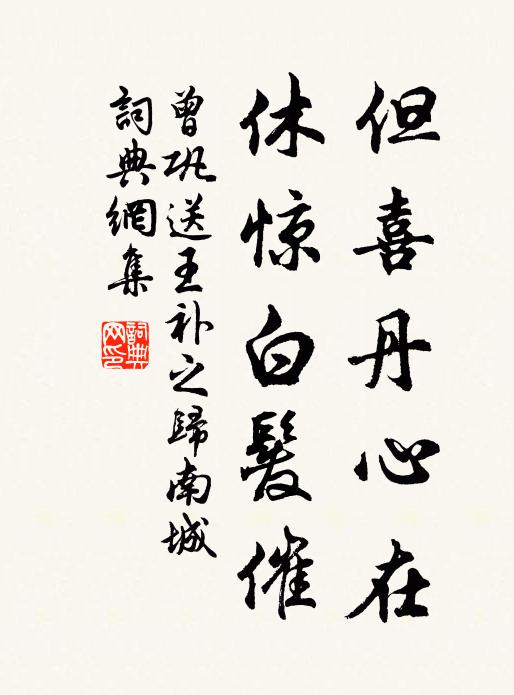 但喜丹心在
休惊白髮催
曾巩送王补之歸南城
詞典網集
詞典网印